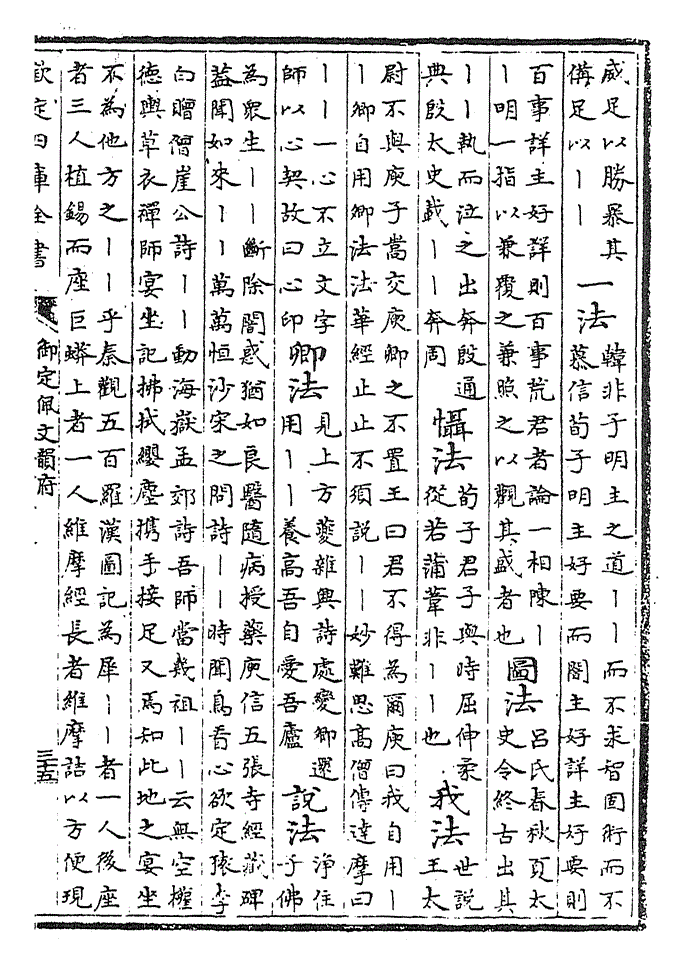 威足以勝暴其
備足以丨丨
一法
韓非子明主之道丨丨而不求智固術而不
慕信荀子明主好要而闇主好詳主好要則
百事詳主好詳則百事荒君者論一相陳丨
丨明一指以兼覆之兼照之以觀其盛者也
圖法
呂氏春秋夏太
史令終古出其
丨丨執而泣之出奔殷通
典殷太史載丨丨奔周
懾法
荀子君子與時屈伸柔
從若蒲葦非丨丨也
我法
世說
王太
尉不與庾子嵩交庾卿之不置王曰君不得為爾庾曰我自用丨
丨卿自用卿法法華經止止不須説丨丨妙難思高僧傳達摩曰
丨丨一心不立文字
師以心契故曰心印
卿法
見上方夔雜興詩處變卿還
用丨丨養高吾自愛吾廬
說法
淨住
子佛
為衆生丨丨斷除闇惑猶如良醫隨病授藥庾信五張寺經藏碑
蓋聞如來丨丨萬萬恒沙宋之問詩丨丨時聞鳥看心欲定猿李
白贈僧崖公詩丨丨動海嶽孟郊詩吾師當幾祖丨丨云無空權
德輿草衣禪師宴坐記拂拭纓塵攜手接足又焉知此地之宴坐
不為他方之丨丨乎秦觀五百羅漢圖記為犀丨丨者一人後座
者三人植錫而座巨蟒上者一人維摩經長者維摩詰以方便現
欽定四庫全書
御定佩文韻府
三十五